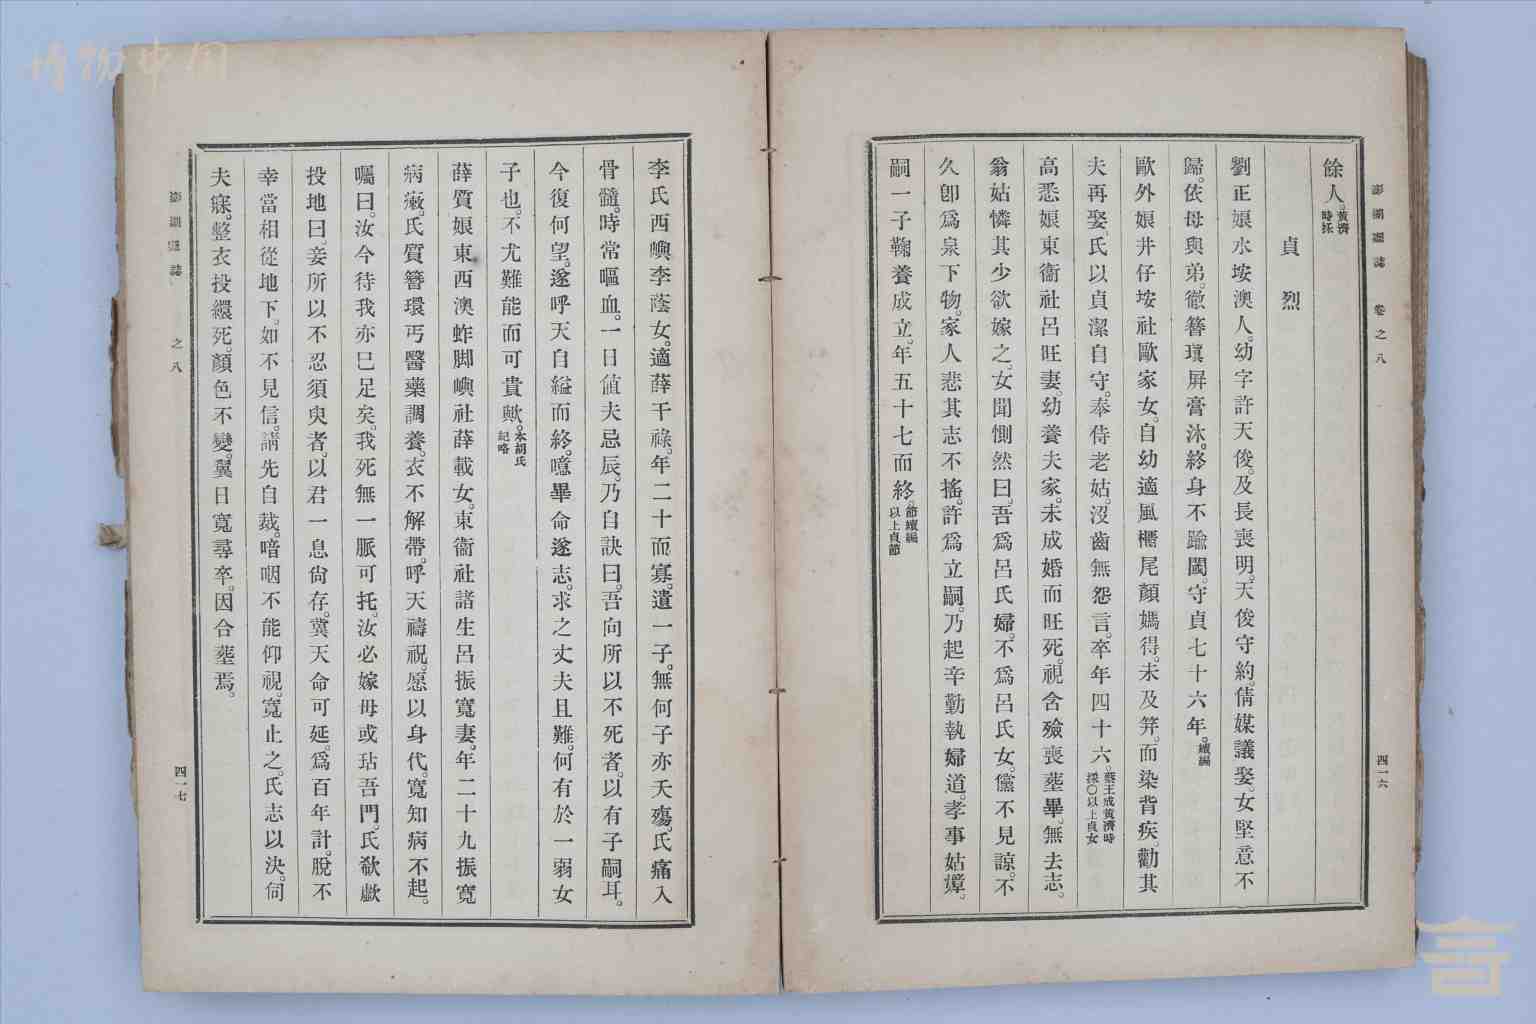 博物中国
澎湖廳誌 卷之八 四一六
餘人。黃濟時採
貞烈
劉正娘水垵澳人。幼字許天俊。及長喪明。天俊守約。倩媒議娶。女堅意不
歸。依母與弟。徹簪瑱屏膏沐。終身不踰閫。守貞七十六年。續編
歐外娘井仔垵社歐家女。自幼適風櫃尾顏媽得。未及笄。而染背疾。勸其
夫再娶。氏以貞潔自守。奉侍老姑。沒齒無怨言。卒年四十六。蔡玉成黃濟時採○以上貞女
高悉娘東衞社呂旺妻。幼養夫家。未成婚而旺死。視含殮喪塟畢。無去志。
翁姑憐其少欲嫁之。女聞惻然曰。吾爲呂氏婦。不爲呂氏女。儻不見諒。不
久卽爲泉下物。家人悲其志不搖。許爲立嗣。乃起辛勤執婦道。孝事姑嫜。
嗣一子鞠養成立。年五十七而終。節續編以上貞節
李氏西嶼李蔭女。適薛千祿。年二十而寡。遺一子。無何子亦夭殤。氏痛入
骨髓。時常嘔血。一日値夫忌辰。乃自訣曰。吾向所以不死者。以有子嗣耳。
今復何望。遂呼天自縊而終。噫畢命遂志。求之丈夫且難。何有於一弱女
子也。不尤難能而可貴歟。本胡氏紀略
薛質娘東西澳蚱脚嶼社薛載女。東衞社諸生呂振寬妻。年二十九振寬
病瘶。氏質簪環丐醫藥調養。衣不解帶。呼天禱祝。愿以身代。寬知病不起。
囑曰。汝今待我亦已足矣。我死無一脈可托。汝必嫁毋或玷吾門。氏欷歔
投地曰。妾所以不忍須臾者。以君一息尙存。冀天命可延。爲百年計。脫不
幸當相從地下。如不見信。請先自裁。喑咽不能仰視。寬止之。氏志以決。伺
夫寐。整衣投繯死。顏色不變。翼日寬尋卒。因合塟焉。
澎湖廳誌 之八 四一七